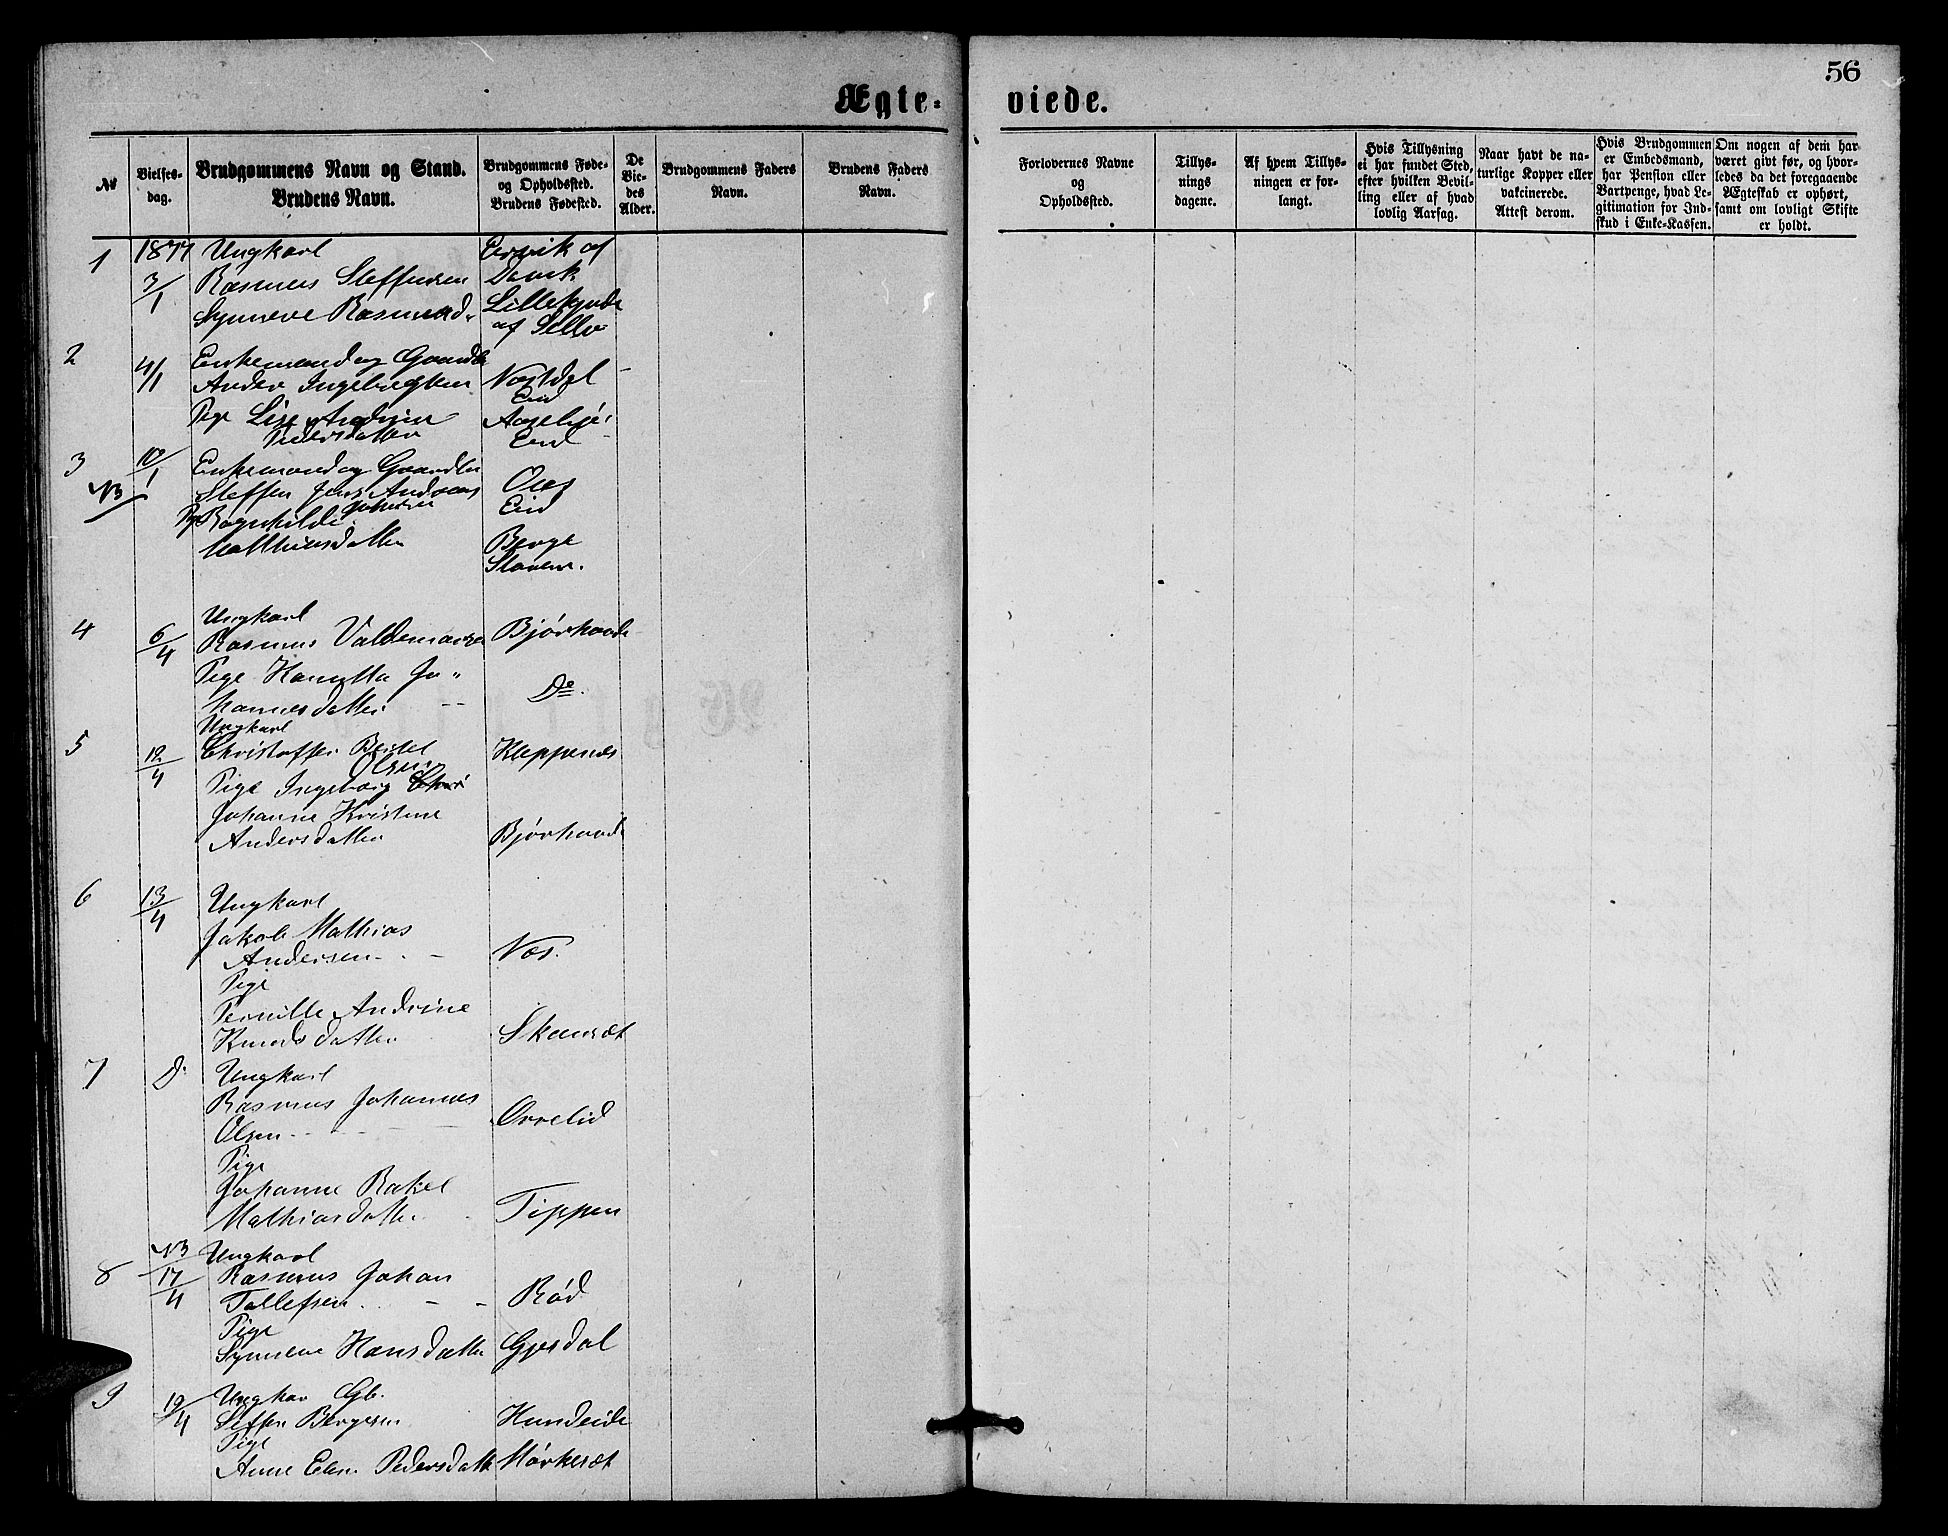 56
Ægte-
viede.
№
Vielses-
dag.
Brudgommens Navn og Stand.
Brudens Navn.
Brudgommens Føde-
og Opholdssted.
Brudens Fødested.
De
Vie-
des
Alder.
Brudgommens Faders
Navn.
Brudens Faders
Navn.
Forlovernes Navne
og
Opholdssted.
Tillys-
nings
dagene.
Af hvem Tillys-
ningen er for-
langt.
Hvis Tillysning
ei har fundet Sted,
efter hvilken Bevil-
ling eller af hvad
lovlig Aarsag.
Naar havt de na-
turlige Kopper eller
vakcinerede.
Attest derom.
Hvis Brudgommen
er Embedsmand,
har Pension eller
Vartpenge, hvad Le-
gitimation for Ind-
skud i Enke-Kassen.
Om nogen af dem har
været givt før, og hvor-
ledes da det foregaaende
Ægteskab er ophørt,
samt om lovligt Skifte
er holdt.
1 1877 Ungkarl Ervik af
3/1 Rasmus Steffensen
Synneve Rasmusd.
af Selje
2 4/1 Enkemand og Gaardb
Anders Ingebrigtsen Nordal
Eid
Pige Lise Andrine
Pedersdatter Eid
3 10/1 Enkemand og Gaardbr
NB Steffen Jens Andreas
Johnsen Eid
Pige Ragnhilde
Matthiasdatter Berge
Ungkarl
4 6/4 Rasmus Valdemarsen Bjørhovde
Pige Hanna Jo-
hannesdatter -- Do.
Ungkarl
5 12/4 Christoffer Bertel Kleppenæs
Olsen
Pige Ingeborg
Johanne Kristine
Andersdatter Bjørhovde
6 13/4 Ungkarl
Jakob Mathias
Andersen - - - Næs.
Pige
Pernille Andrine
Knudsdatter Skaarsæt
7 D. Ungkarl
Rasmus Johannes
Olsen - - - Orrelid
Pige
Johanne Rakel
Mathiasdatter Tippen
NB Ungkarl
8 17/4 Rasmus Johan
Tollefsen - - - Rød
Pige
Synneve Hansdatter Gjesdal
9 19/4 Ungkar Gb.
Steffen Børgesen Hundeide
Pige
Anne Elen Pedersdatt Mørkesæt